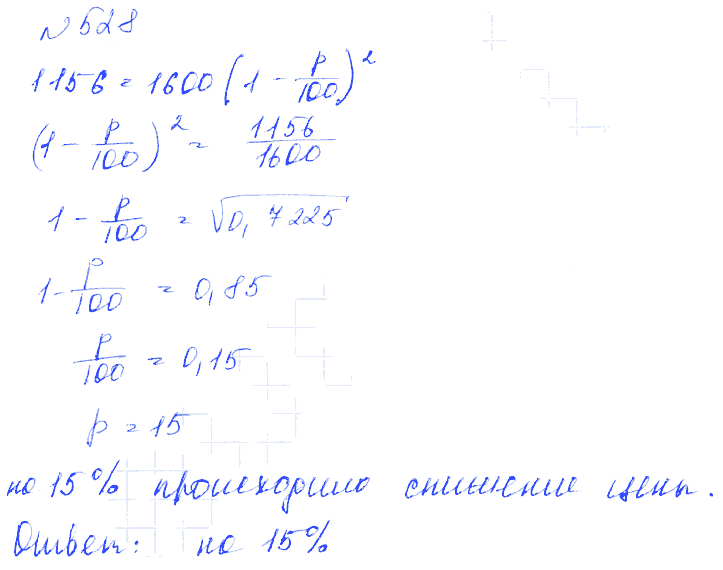 №528
1156 = 1600 (1 - p/100)²
(1 - p/100)² = 1156/1600
1 - p/100 = √0,7225
1 - p/100 = 0,85
p/100 = 0,15
p = 15
на 15% происходило снижение цены.
Ответ: на 15%